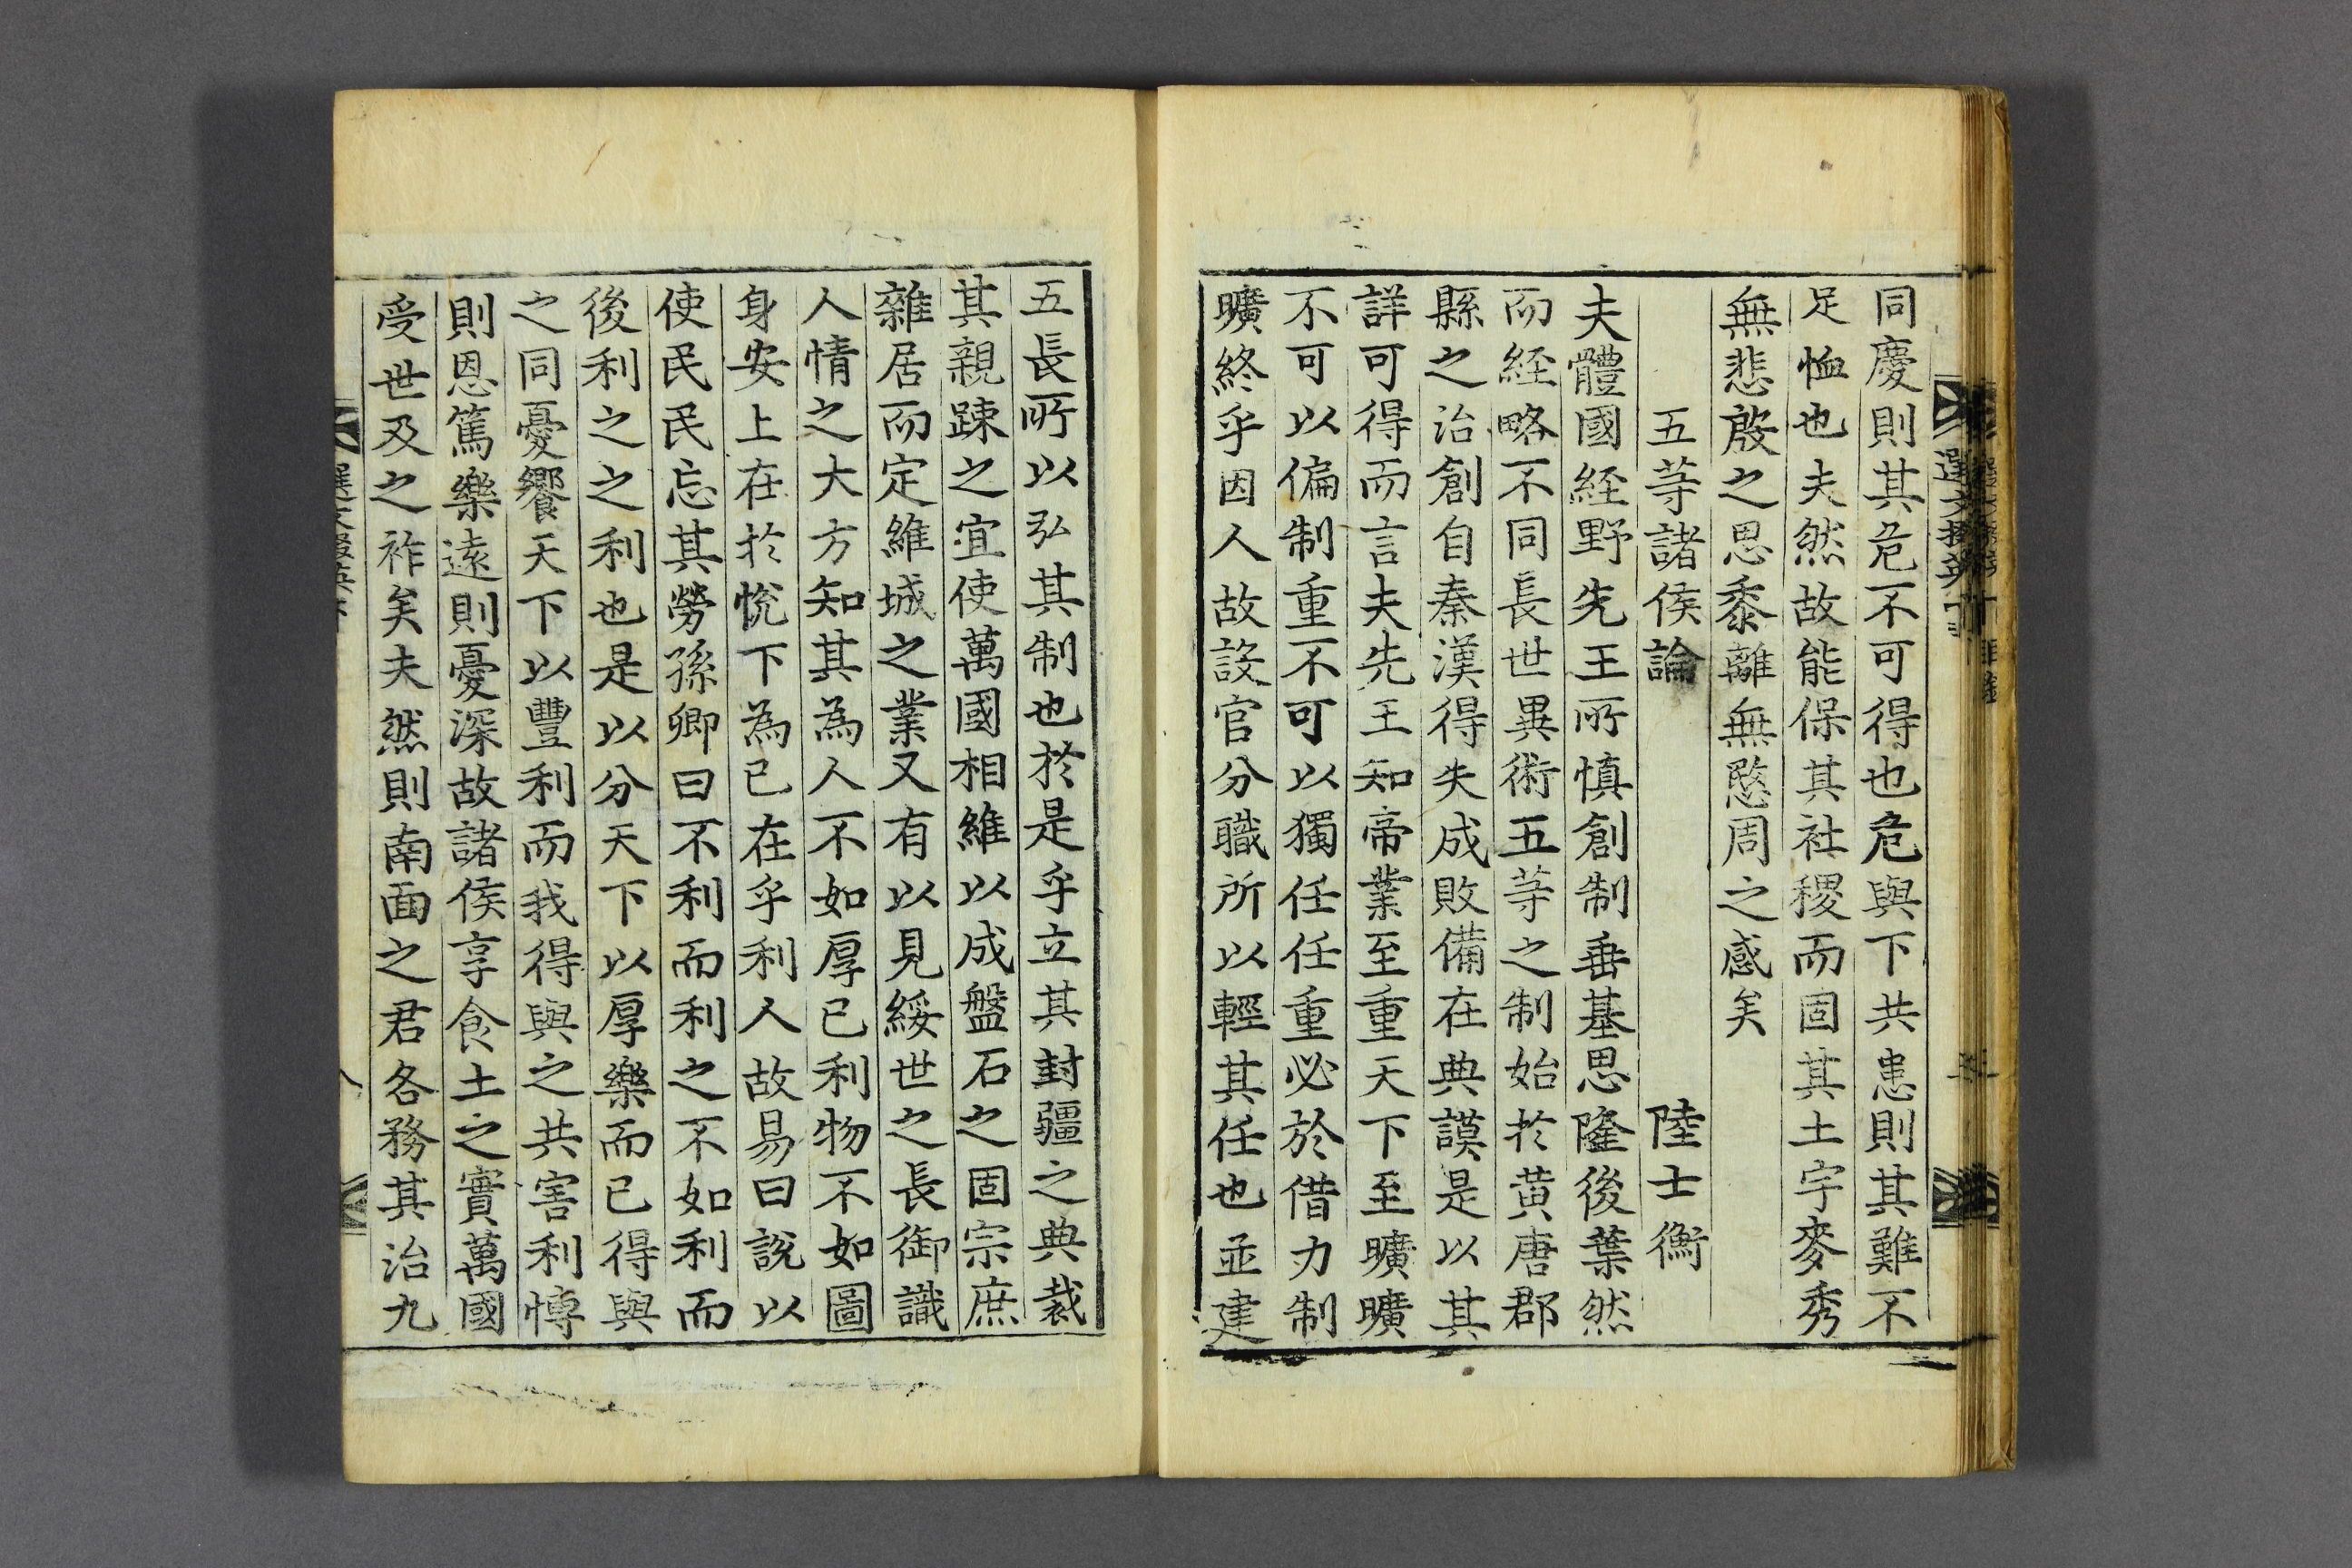 同慶則其危不可得也危與下共患則其難不
足恤也夫然故能保其社稷而固其土宇麥秀
無悲殷之思黍離無愍周之感矣
五等諸侯論 陸士衡
夫體國経野先王所慎創制垂基思隆後葉然
而経略不同長世異術五等之制始於黄唐郡
縣之治創自秦漢得失成敗備在典謨是以其
詳可得而言夫先王知帝業至重天下至曠曠
不可以偏制重不可以獨任任重必於借力制
曠終乎因人故設官分職所以輕其任也並建
五長所以弘其制也於是乎立其封疆之典裁
其親踈之宜使萬國相維以成盤石之固宗庶
雜居而定維城之業又有以見綏世之長御識
人情之大方知其為人不如厚已利物不如圖
身安上在於悅下為已在乎利人故易曰說以
使民民忘其勞孫卿曰不利而利之不如利而
後利之之利也是以分天下以厚樂而已得與
之同憂饗天下以豐利而我得與之共害利博
則恩篤樂遠則憂深故諸侯享食土之實萬國
受世及之祚矣夫然則南面之君各務其治九